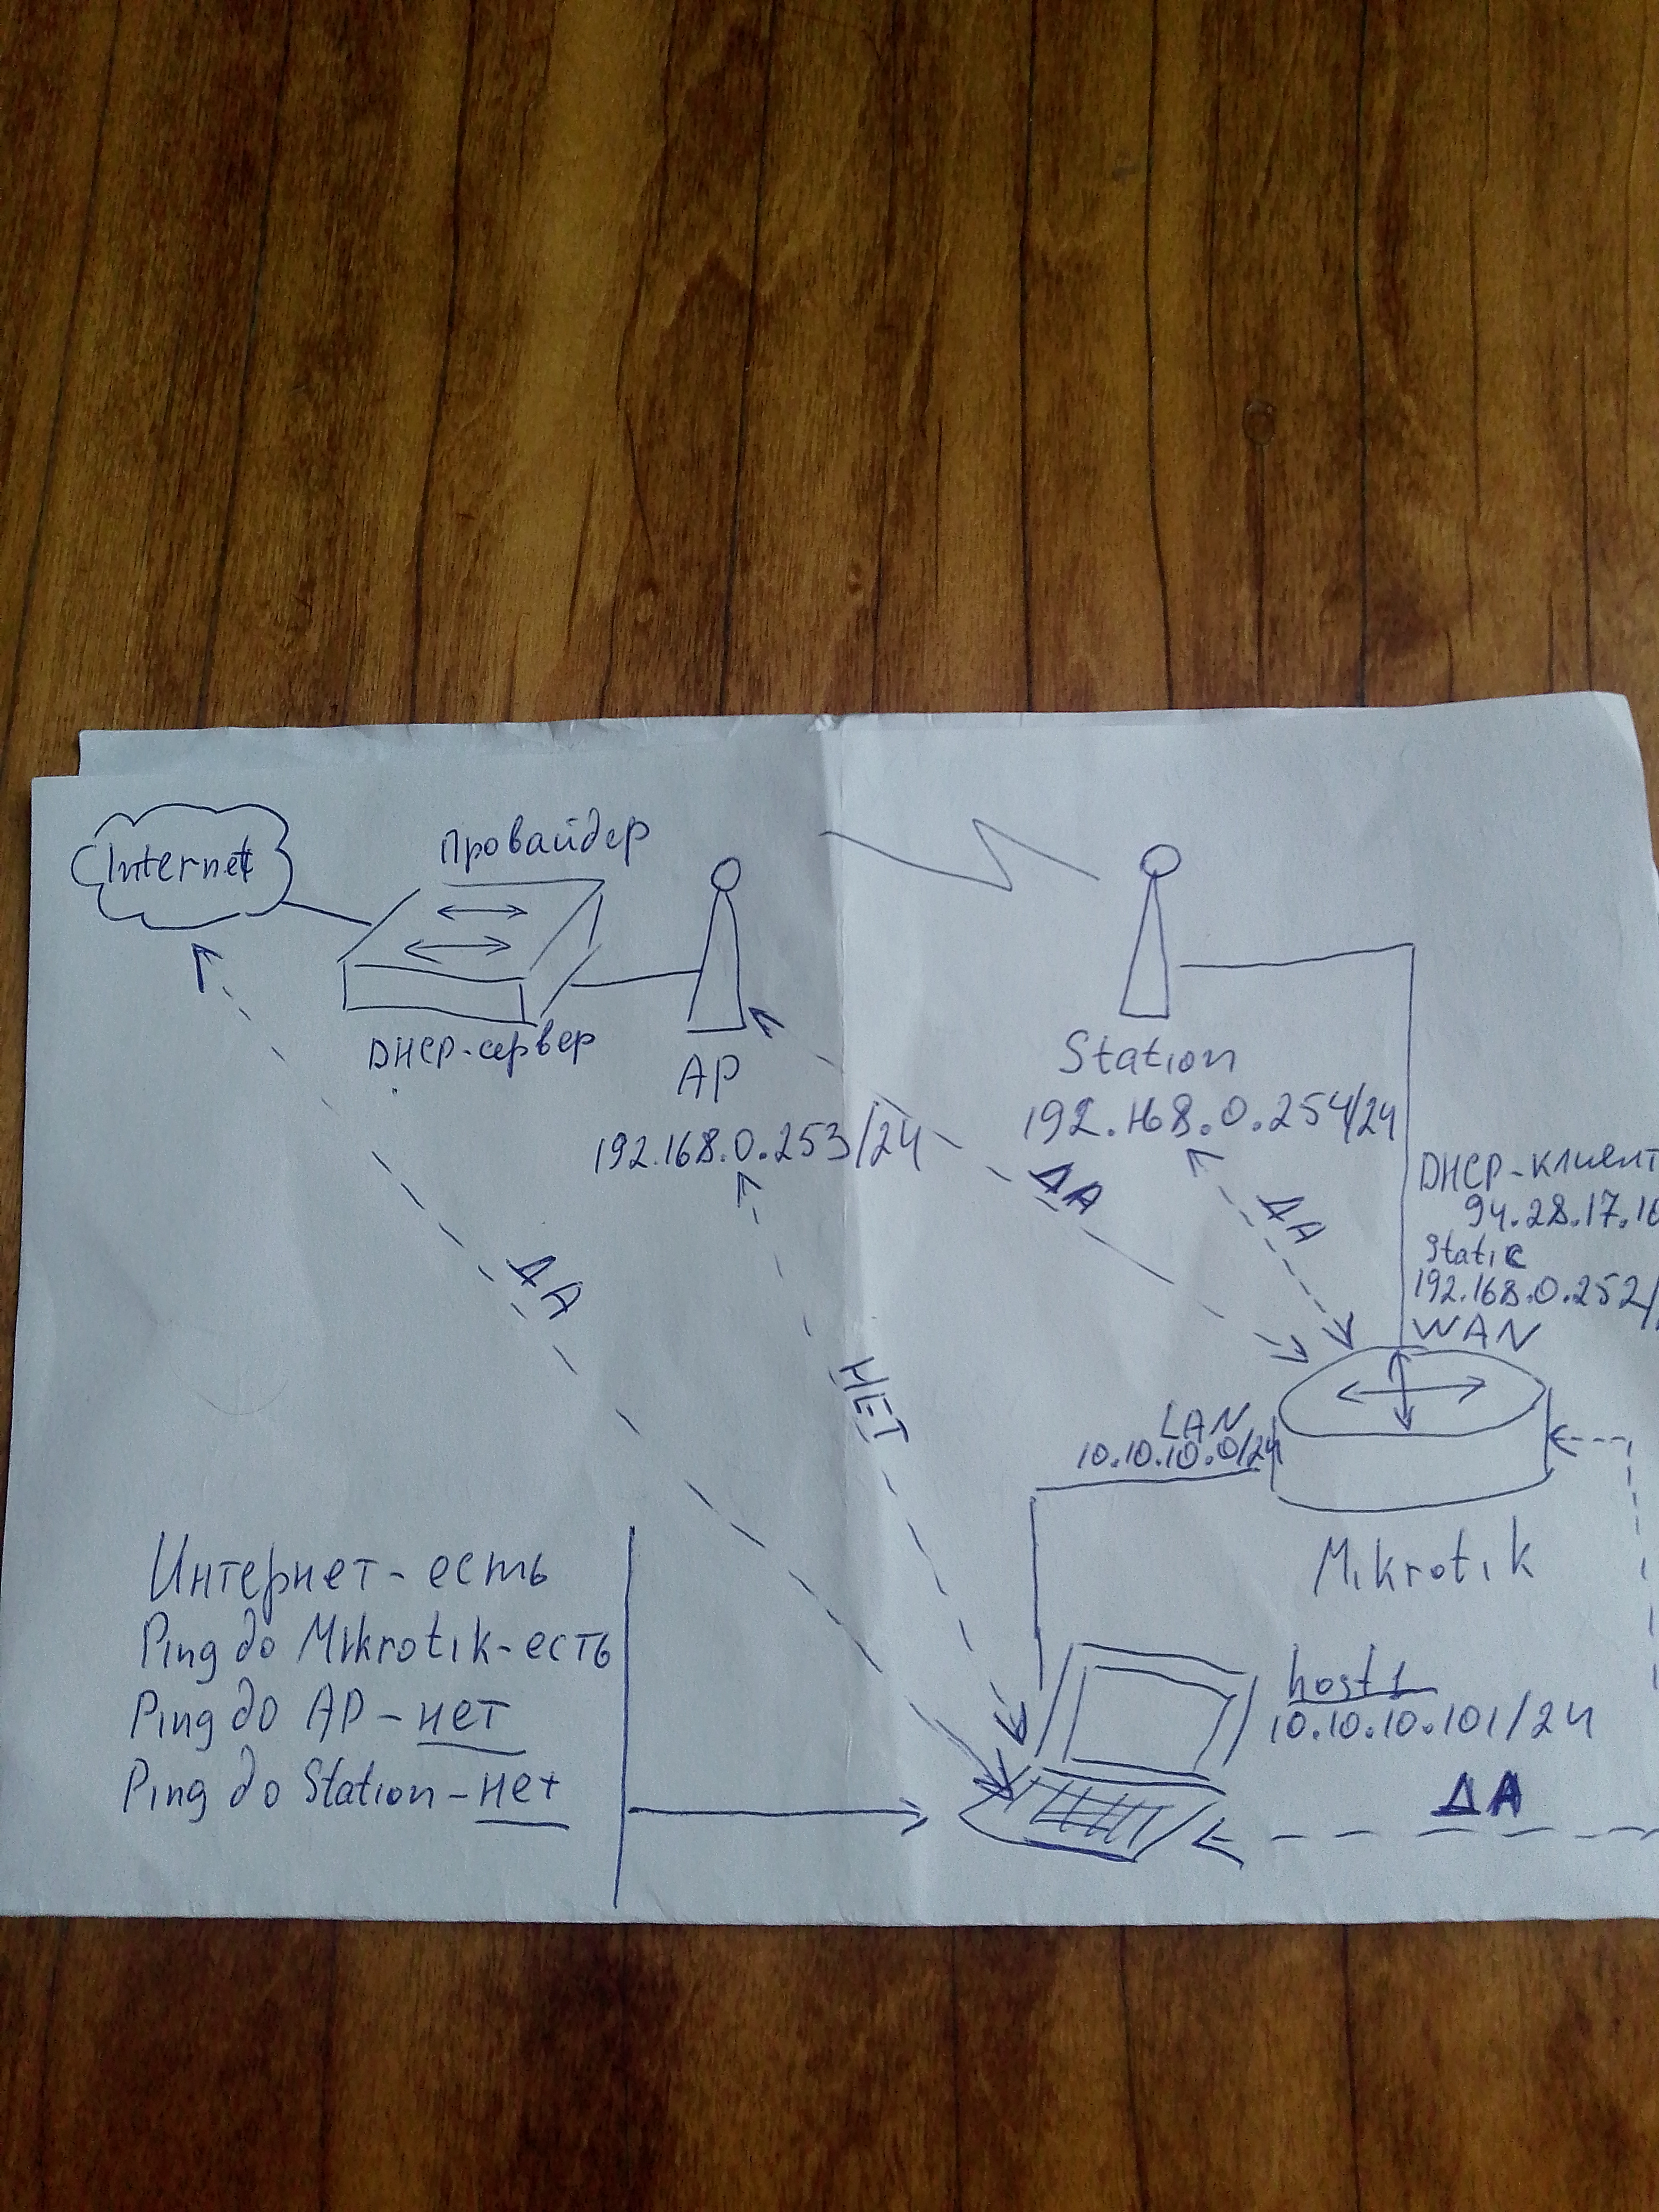 Internet
провайдер
DHCP-сервер
AP
192.168.0.253/24
Station
192.168.0.254/24
DHCP-клиент
94.28.17.10
Static
192.168.0.252/
WAN
ДА
ДА
ДА
НЕТ
LAN
10.10.10.0/24
Mikrotik
host1
10.10.10.101/24
ДА
Интернет - есть
Ping до Mikrotik - есть
Ping до AP - нет
Ping до Station - нет